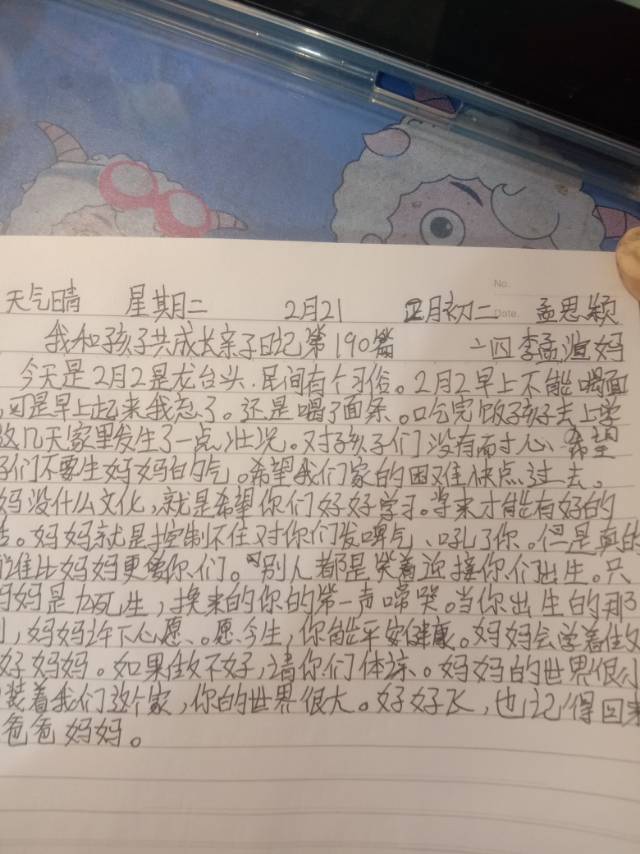 No.
Date.
天气晴 星期二 2月21 正月初二 孟思颖
我和孩子共成长亲子日记第190篇 二四 李孟 妈
今天是2月2是龙台头.民间有个习俗。2月2早上不能喝面
可是早上起来我忘了。还是喝了面条。吃完饭孩子去上学
几天家里发生了一点状况。对孩子们没有耐心、希望
子们不要生妈妈的气。希望我们家的困难快点过去。
妈没什么文化,就是希望你们好好学习。学来才能有好的
。妈妈就是控制不住对你们发脾气、吼了你。但是真的
谁比妈妈更爱你们。别人都是笑着迎接你们出生。只
妈妈是九死生,换来的你的第一声啼哭。当你出生的那
,妈妈许下心愿、。愿今生,你能平安健康。妈妈会学着做
好妈妈。如果做不好,请你们体谅。妈妈的世界很小
装着我们这个家,你的世界很大。好好飞,也记得回来
爸爸妈妈。